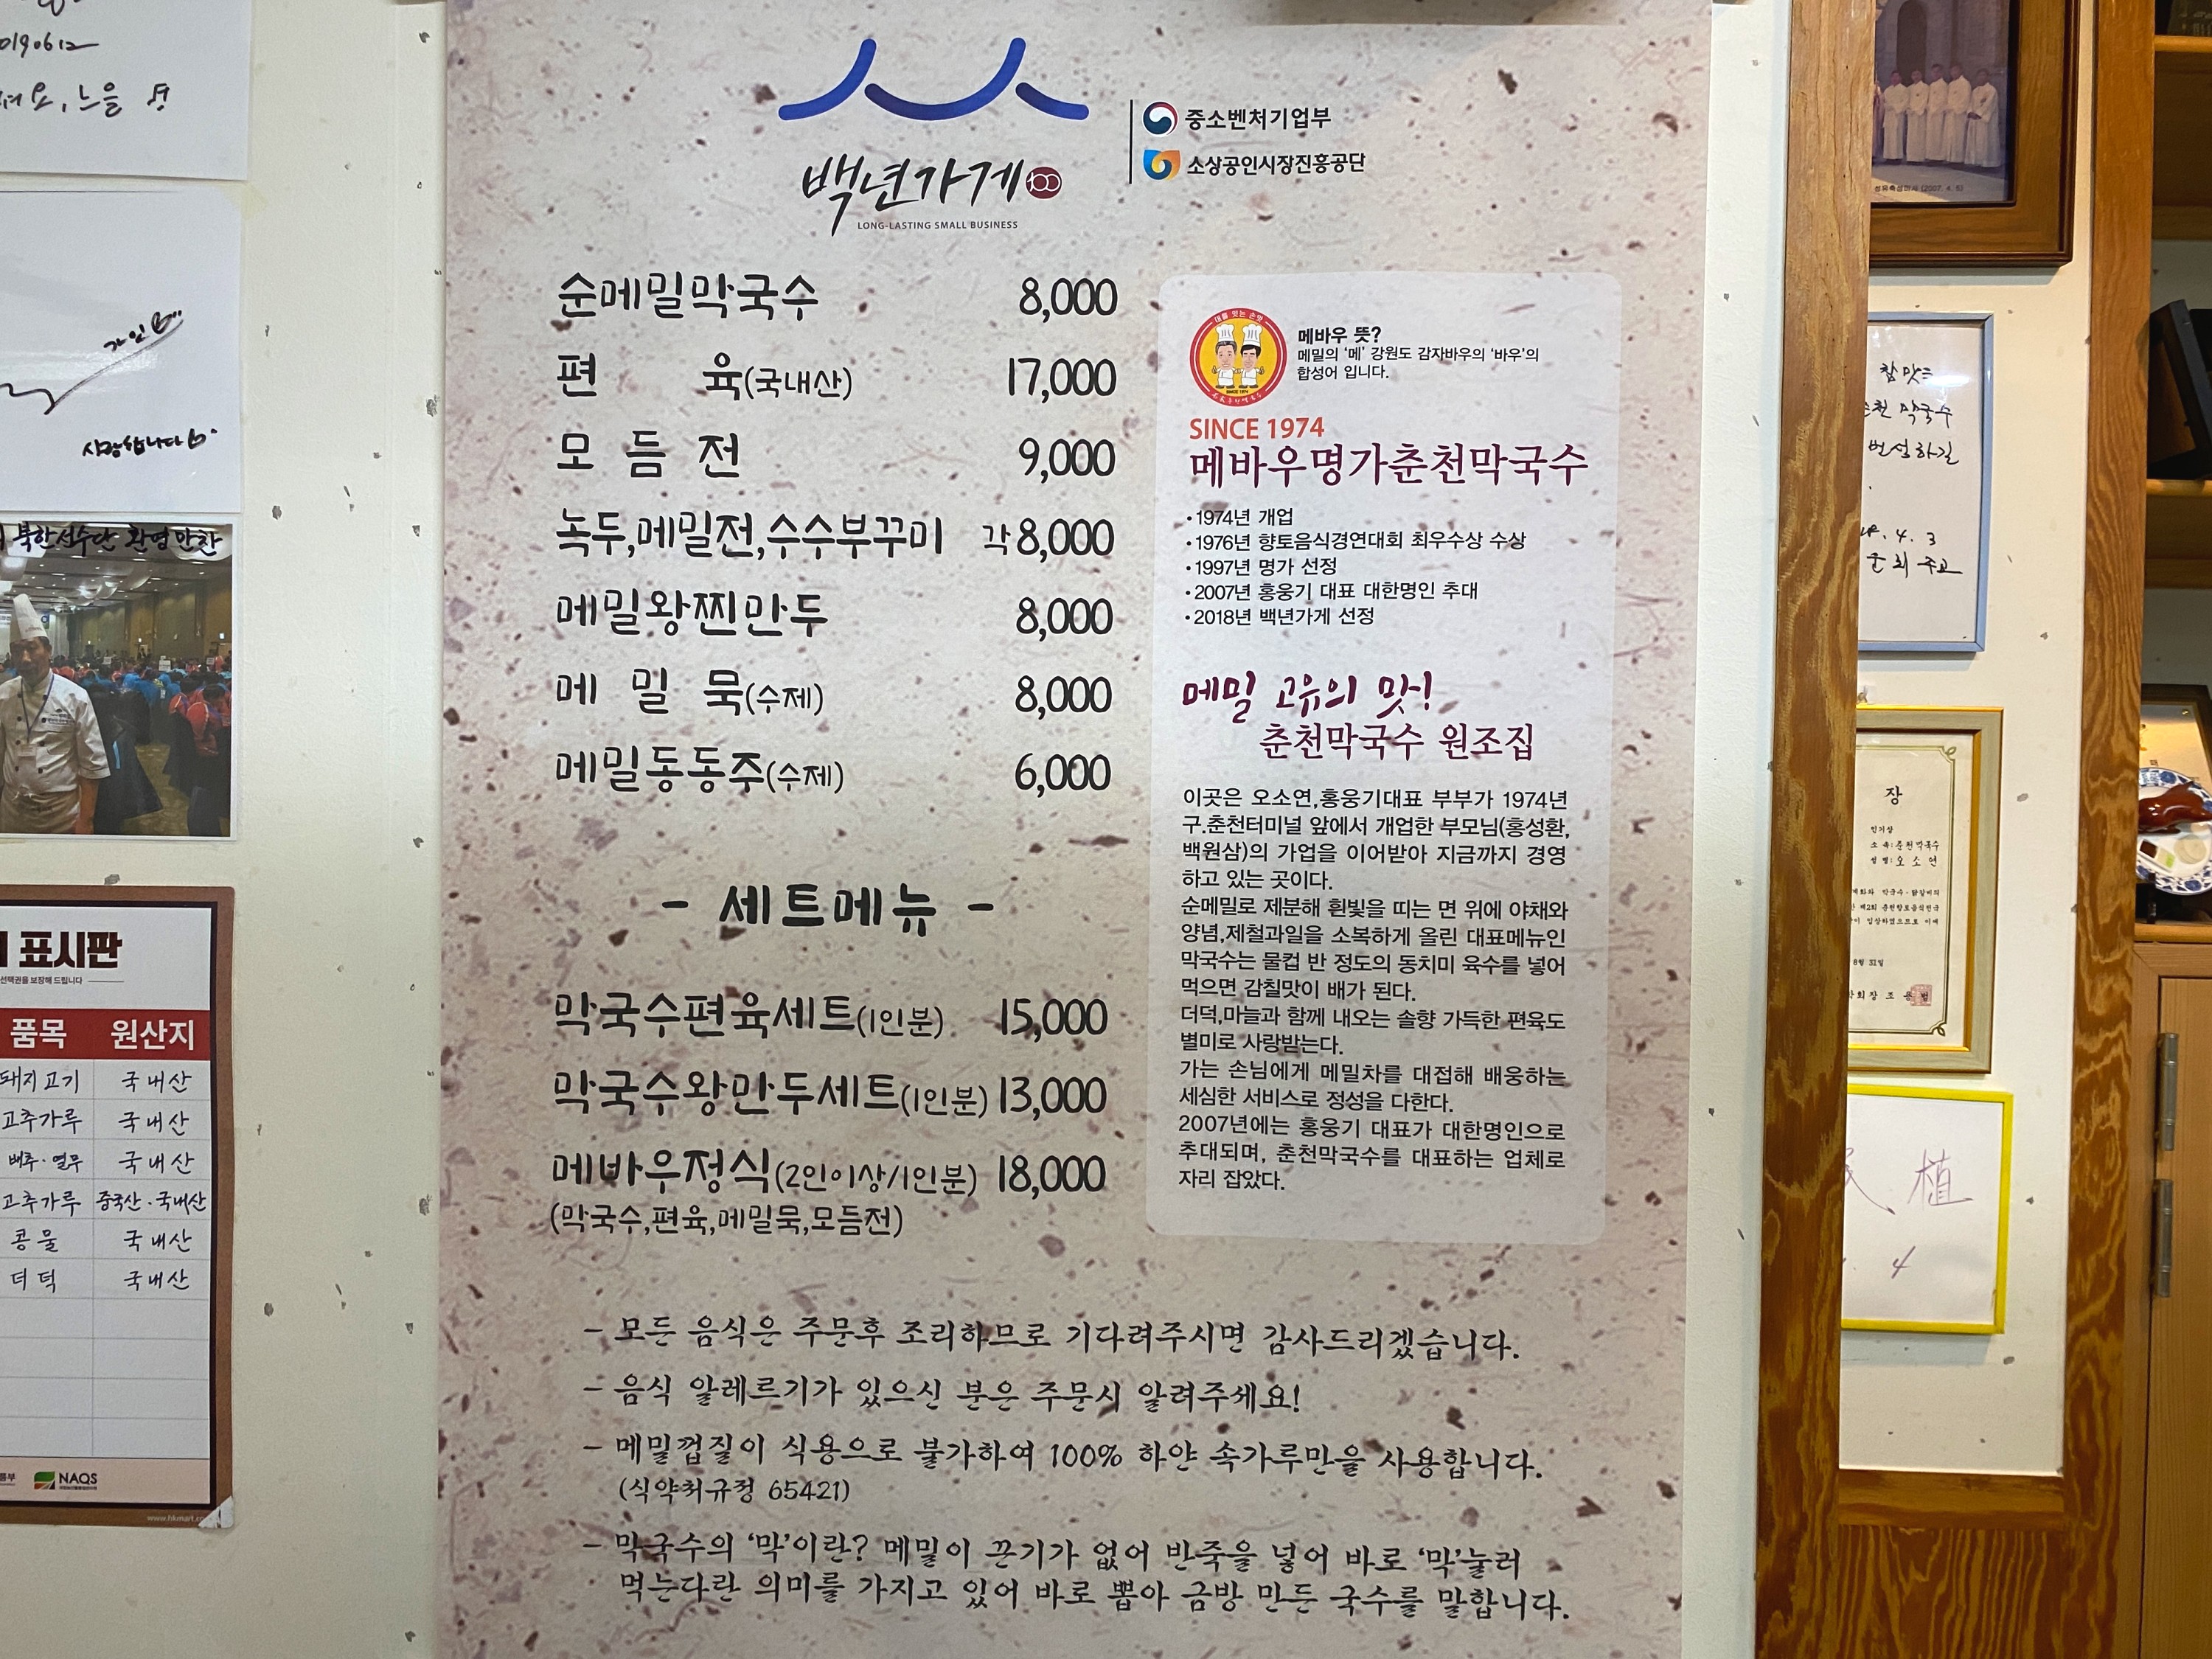 백년가게
LONG-LASTING SMALL BUSINESS
중소벤처기업부
소상공인시장진흥공단
순메밀막국수 8,000
편 육(국내산) 17,000
모 듬 전 9,000
녹두,메밀전,수수부꾸미 각8,000
메밀왕찐만두 8,000
메 밀 묵(수제) 8,000
메밀동동주(수제) 6,000
- 세트메뉴 -
막국수편육세트(1인분) 15,000
막국수왕만두세트(1인분) 13,000
메바우정식(2인이상/1인분) 18,000
(막국수,편육,메밀묵,모듬전)
메바우 뜻?
메밀의 '메' 강원도 감자바우의 '바우'의
합성어 입니다.
SINCE 1974
메바우명가춘천막국수
•1974년 개업
•1976년 향토음식경연대회 최우수상 수상
•1997년 명가 선정
•2007년 홍웅기 대표 대한명인 추대
•2018년 백년가게 선정
메밀 고유의 맛!
춘천막국수 원조집
이곳은 오소연,홍웅기대표 부부가 1974년
구.춘천터미널 앞에서 개업한 부모님(홍성환,
백원삼)의 가업을 이어받아 지금까지 경영
하고 있는 곳이다.
순메밀로 제분해 흰빛을 띠는 면 위에 야채와
양념,제철과일을 소복하게 올린 대표메뉴인
막국수는 물컵 반 정도의 동치미 육수를 넣어
먹으면 감칠맛이 배가 된다.
더덕,마늘과 함께 내오는 솔향 가득한 편육도
별미로 사랑받는다.
가는 손님에게 메밀차를 대접해 배웅하는
세심한 서비스로 정성을 다한다.
2007년에는 홍웅기 대표가 대한명인으로
추대되며, 춘천막국수를 대표하는 업체로
자리 잡았다.
- 모든 음식은 주문후 조리하므로 기다려주시면 감사드리겠습니다.
- 음식 알레르기가 있으신 분은 주문시 알려주세요!
- 메밀껍질이 식용으로 불가하여 100% 하얀 속가루만을 사용합니다.
(식약처규정 65421)
- 막국수의 '막'이란? 메밀이 끈기가 없어 반죽을 넣어 바로 '막'눌러
먹는다란 의미를 가지고 있어 바로 뽑아 금방 만든 국수를 말합니다.
사랑합니다
북한선수단 환영만찬
표시판
선택권을 보장해 드립니다
품목 원산지
돼지고기 국내산
고추가루 국내산
배추·열무 국내산
고추가루 중국산·국내산
콩물 국내산
더덕 국내산
NAQS
참맛
막국수
번성하길
4. 3
장
소 속:춘천막국수
성 명:오 소 연
8월 31일
植
4